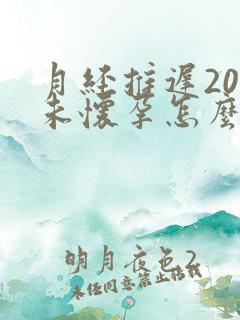 月经推遲20
未懷孕怎麽
明月夜色2
未经同意禁止搭载